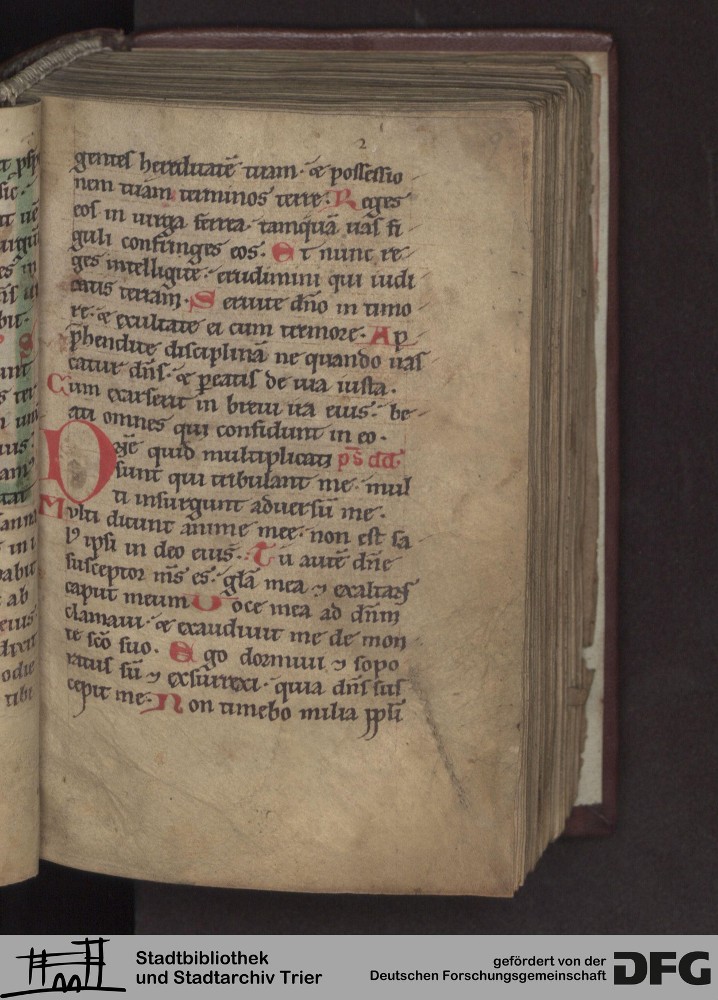 2
gentes hereditatē tuam · ⁊ possessio
nem tuam terminos terre · Reges
eos in uirga ferrea · tamquā uas fi
guli confringes eos · Et nunc re
ges intelligite · erudimini qui iudi
catis terram · Seruite dño in timo
re · ⁊ exultate ei cum tremore · Ap
p̄hendite disciplinā ne quando iras
catur dñs · ⁊ peatis de uia iusta ·
Cum exarserit in breui ira eius · be
ati omnes qui confidunt in eo ·
Dñe quid multiplicati ps̄ dd̄
sunt qui tribulant me · mul
ti insurgunt aduersū me ·
Multi dicunt anime mee · non est sa
lꝰ ipsi in deo eius · Tu autē dñe
susceptor m̄s es · glā mea ⁊ exaltans
caput meum Voce mea ad dn̄m
clamaui · ⁊ exaudiuit me de mon
te sc̄o suo · Ego dormiui ⁊ sopo
ratus sū ⁊ exsurrexi · quia dñs sus
cepit me · Non timebo milia ppl̄i
Stadtbibliothek
und Stadtarchiv Trier
gefördert von der
Deutschen Forschungsgemeinschaft
DFG